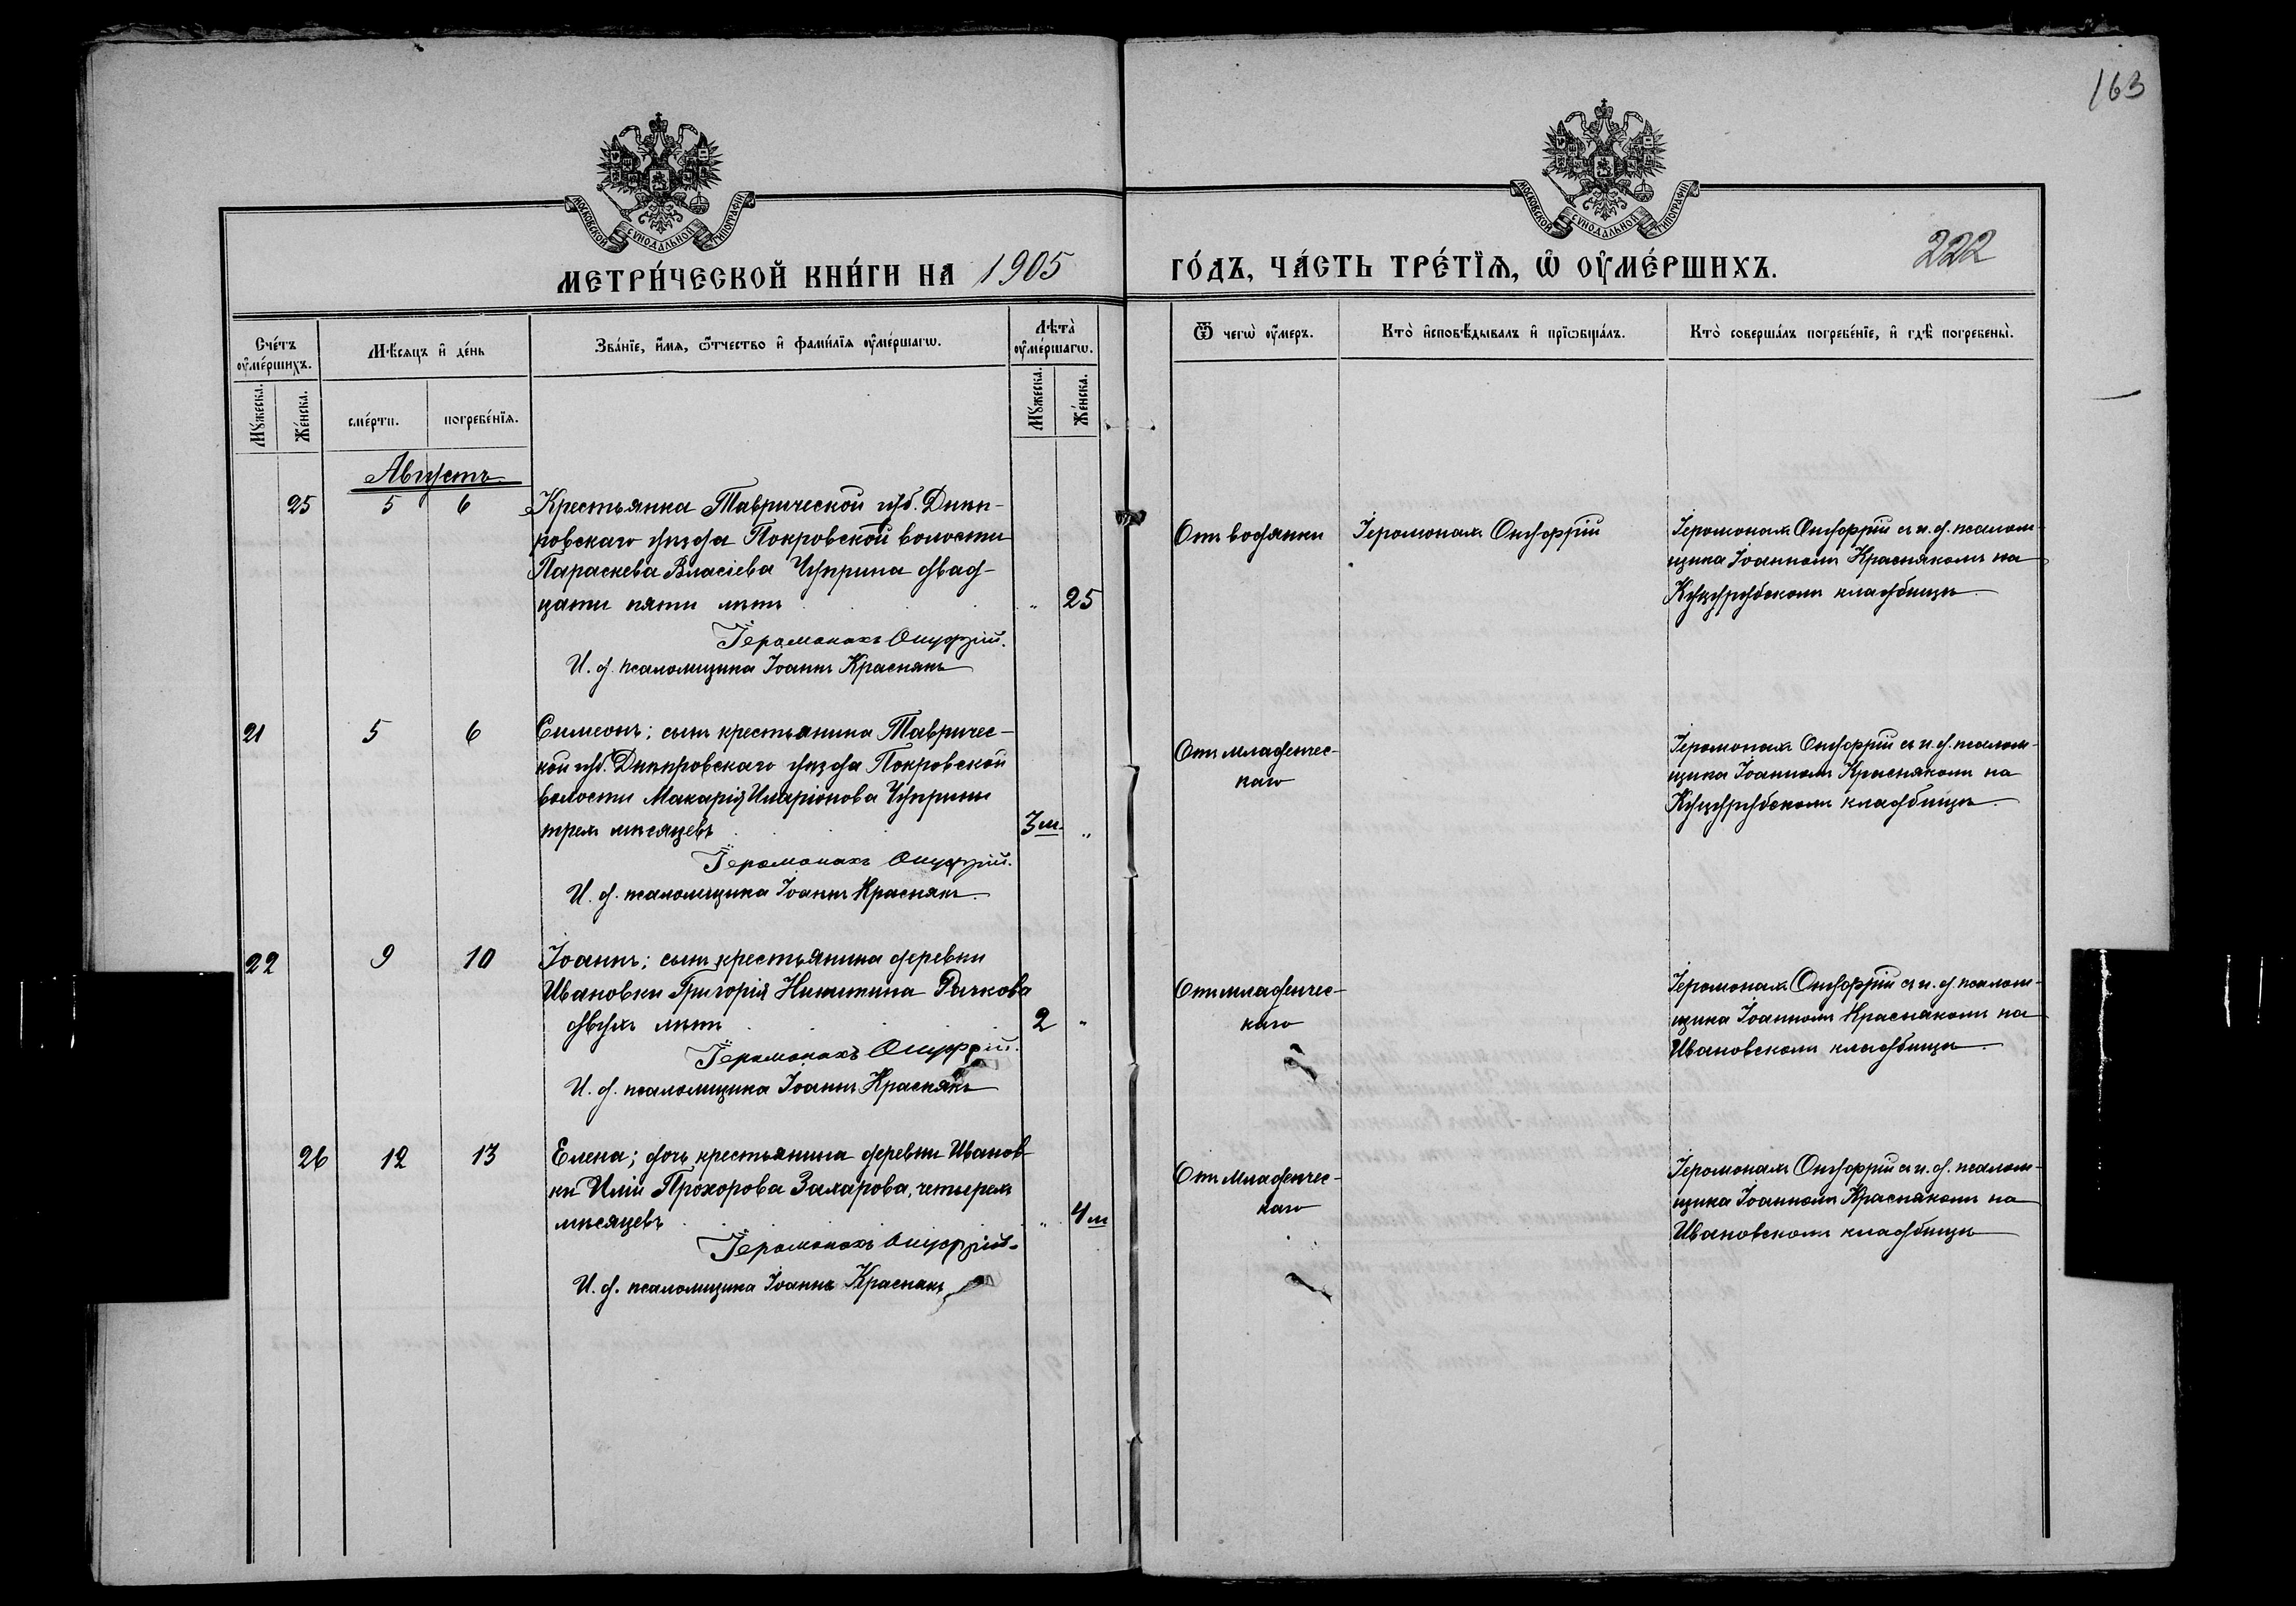 163
МОСКОВСКОЙ СУНОДАЛЬНОЙ ТИПОГРАФІИ
МОСКОВСКОЙ СУНОДАЛЬНОЙ ТИПОГРАФІИ
222
МЕТРИ́ЧЕСКОЙ КНИ́ГИ НА 1905
ГО́ДЪ, ЧА́СТЬ ТРЕ́ТЇѦ, Ѡ҆ ОУ҆МЕ́РШИХЪ.
Сче́тъ оу҆ме́ршихъ.
Мѣ́сяцъ и҆ де́нь
Зва́нїе, и҆́мѧ, ѻ҆́тчество и҆ фами́лїѧ оу҆ме́ршагѡ.
Лѣта̀ оу҆ме́ршагѡ.
Ѿ чегѡ̀ оу҆́меръ.
Кто̀ и҆сповѣ́дывалъ и҆ прїѡбща́лъ.
Кто̀ соверша́лъ погребе́нїе, и҆ гдѣ̀ погребены̀.
Мꙋ́жеска.
Же́нска.
сме́рти.
погребе́нїѧ.
Мꙋ́жеска.
Же́нска.
Августъ
25 5 6 Крестьянка Таврической губ. Днѣп-
ровскаго уѣзда Покровской волости
Параскева Власіева Чуприна двад-
цати пяти лѣтъ " 25
Іеромонахъ Онуфрій.
И. д. псаломщика Іоаннъ Краснякъ
Отъ водянки
Іеромонахъ Онуфрій
Іеромонахъ Онуфрій съ и. д. псалом-
щика Іоанномъ Краснякомъ на
Куцурубскомъ кладбищѣ.
21 5 6 Симеонъ; сынъ крестьянина Тавричес-
кой губ. Днѣпровскаго уѣзда Покровской
волости Макарія Иларіонова Чуприны
трехъ мѣсяцевъ 3 м. "
Іеромонахъ Онуфрій.
И. д. псаломщика Іоаннъ Краснякъ.
Отъ младенчес-
каго
Іеромонахъ Онуфрій съ и. д. псалом-
щика Іоанномъ Краснякомъ на
Куцурубскомъ кладбищѣ.
22 9 10 Іоаннъ; сынъ крестьянина деревни
Ивановки Григорія Никитина Рычкова
двухъ лѣтъ 2 "
Іеромонахъ Онуфрій.
И. д. псаломщика Іоаннъ Краснякъ
Отъ младенчес-
каго
Іеромонахъ Онуфрій съ и. д. псалом-
щика Іоанномъ Краснякомъ на
Ивановскомъ кладбищѣ.
26 12 13 Елена; дочь крестьянина деревни Иванов-
ки Иліи Прохорова Захарова, четырехъ
мѣсяцевъ " 4 м
Іеромонахъ Онуфрій.
И. д. псаломщика Іоаннъ Краснякъ
Отъ младенчес-
каго
Іеромонахъ Онуфрій съ и. д. псалом-
щика Іоанномъ Краснякомъ на
Ивановскомъ кладбищѣ